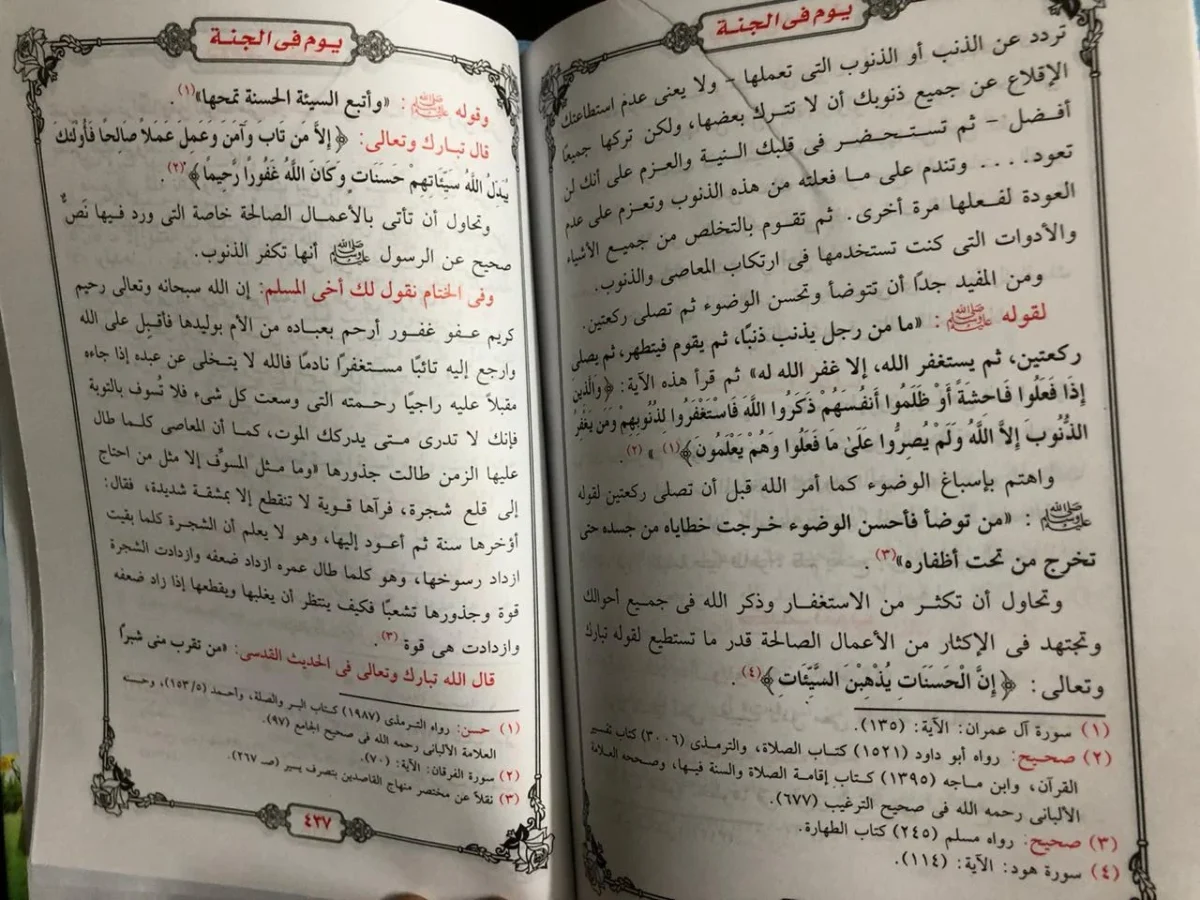 يوم فى الجنة
تردد عن الذنب أو الذنوب التى تعملها - ولا يعنى عدم استطاعتك
الإقلاع عن جميع ذنوبك أن لا تترك بعضها، ولكن تركها جميعًا
أفضل - ثم تستحضر فى قلبك النية والعزم على أنك لن
تعود.... وتندم على ما فعلته من هذه الذنوب وتعزم على عدم
العودة لفعلها مرة أخرى. ثم تقوم بالتخلص من جميع الأشياء
والأدوات التى كنت تستخدمها فى ارتكاب المعاصى والذنوب.
ومن المفيد جدًا أن تتوضأ وتحسن الوضوء ثم تصلى ركعتين.
لقوله ﷺ: «ما من رجل يذنب ذنبًا، ثم يقوم فيتطهر، ثم يصلى
ركعتين، ثم يستغفر الله، إلا غفر الله له» ثم قرأ هذه الآية: ﴿وَالَّذِينَ
إِذَا فَعَلُوا فَاحِشَةً أَوْ ظَلَمُوا أَنفُسَهُمْ ذَكَرُوا اللَّهَ فَاسْتَغْفَرُوا لِذُنُوبِهِمْ وَمَن يَغْفِرُ
الذُّنُوبَ إِلاَّ اللَّهُ وَلَمْ يُصِرُّوا عَلَىٰ مَا فَعَلُوا وَهُمْ يَعْلَمُونَ﴾(١) » (٢).
واهتم بإسباغ الوضوء كما أمر الله قبل أن تصلى ركعتين لقوله
ﷺ: «من توضأ فأحسن الوضوء خرجت خطاياه من جسده حتى
تخرج من تحت أظفاره»(٣).
وتحاول أن تكثر من الاستغفار وذكر الله فى جميع أحوالك
وتجتهد فى الإكثار من الأعمال الصالحة قدر ما تستطيع لقوله تبارك
وتعالى: ﴿إِنَّ الْحَسَنَاتِ يُذْهِبْنَ السَّيِّئَاتِ﴾(٤).
(١) سورة آل عمران: الآية: (١٣٥).
(٢) صحيح: رواه أبو داود (١٥٢١) كتاب الصلاة، والترمذى (٣٠٠٦) كتاب تفسير
القرآن، وابن ماجه (١٣٩٥) كتاب إقامة الصلاة والسنة فيها، وصححه العلامة
الألبانى رحمه الله فى صحيح الترغيب (٦٧٧).
(٣) صحيح: رواه مسلم (٢٤٥) كتاب الطهارة.
(٤) سورة هود: الآية: (١١٤).
يوم فى الجنة
وقوله ﷺ: «وأتبع السيئة الحسنة تمحها»(١).
قال تبارك وتعالى: ﴿إِلاَّ مَن تَابَ وَآمَنَ وَعَمِلَ عَمَلاً صَالِحًا فَأُوْلَئِكَ
يُبَدِّلُ اللَّهُ سَيِّئَاتِهِمْ حَسَنَاتٍ وَكَانَ اللَّهُ غَفُورًا رَّحِيمًا﴾(٢).
وتحاول أن تأتى بالأعمال الصالحة خاصة التى ورد فيها نَصٌّ
صحيح عن الرسول ﷺ أنها تكفر الذنوب.
وفى الختام نقول لك أخى المسلم: إن الله سبحانه وتعالى رحيم
كريم عفو غفور أرحم بعباده من الأم بوليدها فأقبل على الله
وارجع إليه تائبًا مستغفرًا نادمًا فالله لا يتخلى عن عبده إذا جاءه
مقبلاً عليه راجيًا رحمته التى وسعت كل شىء فلا تُسوف بالتوبة
فإنك لا تدرى متى يدركك الموت، كما أن المعاصى كلما طال
عليها الزمن طالت جذورها «وما مثل المسوِّف إلا مثل من احتاج
إلى قلع شجرة، فرآها قوية لا تنقطع إلا بمشقة شديدة، فقال:
أؤخرها سنة ثم أعود إليها، وهو لا يعلم أن الشجرة كلما بقيت
ازداد رسوخها، وهو كلما طال عمره ازداد ضعفه وازدادت الشجرة
قوة وجذورها تشعبًا فكيف ينتظر أن يغلبها ويقطعها إذا زاد ضعفه
وازدادت هى قوة(٣).
قال الله تبارك وتعالى فى الحديث القدسى: «من تقرب منى شبرًا
(١) حسن: رواه الترمذى (١٩٨٧) كتاب البر والصلة، وأحمد (١٥٣/٥)، وحسنه
العلامة الألبانى رحمه الله فى صحيح الجامع (٩٧).
(٢) سورة الفرقان: الآية: (٧٠).
(٣) نقلاً عن مختصر منهاج القاصدين بتصرف يسير (صـ ٢٦٧).
٤٣٧